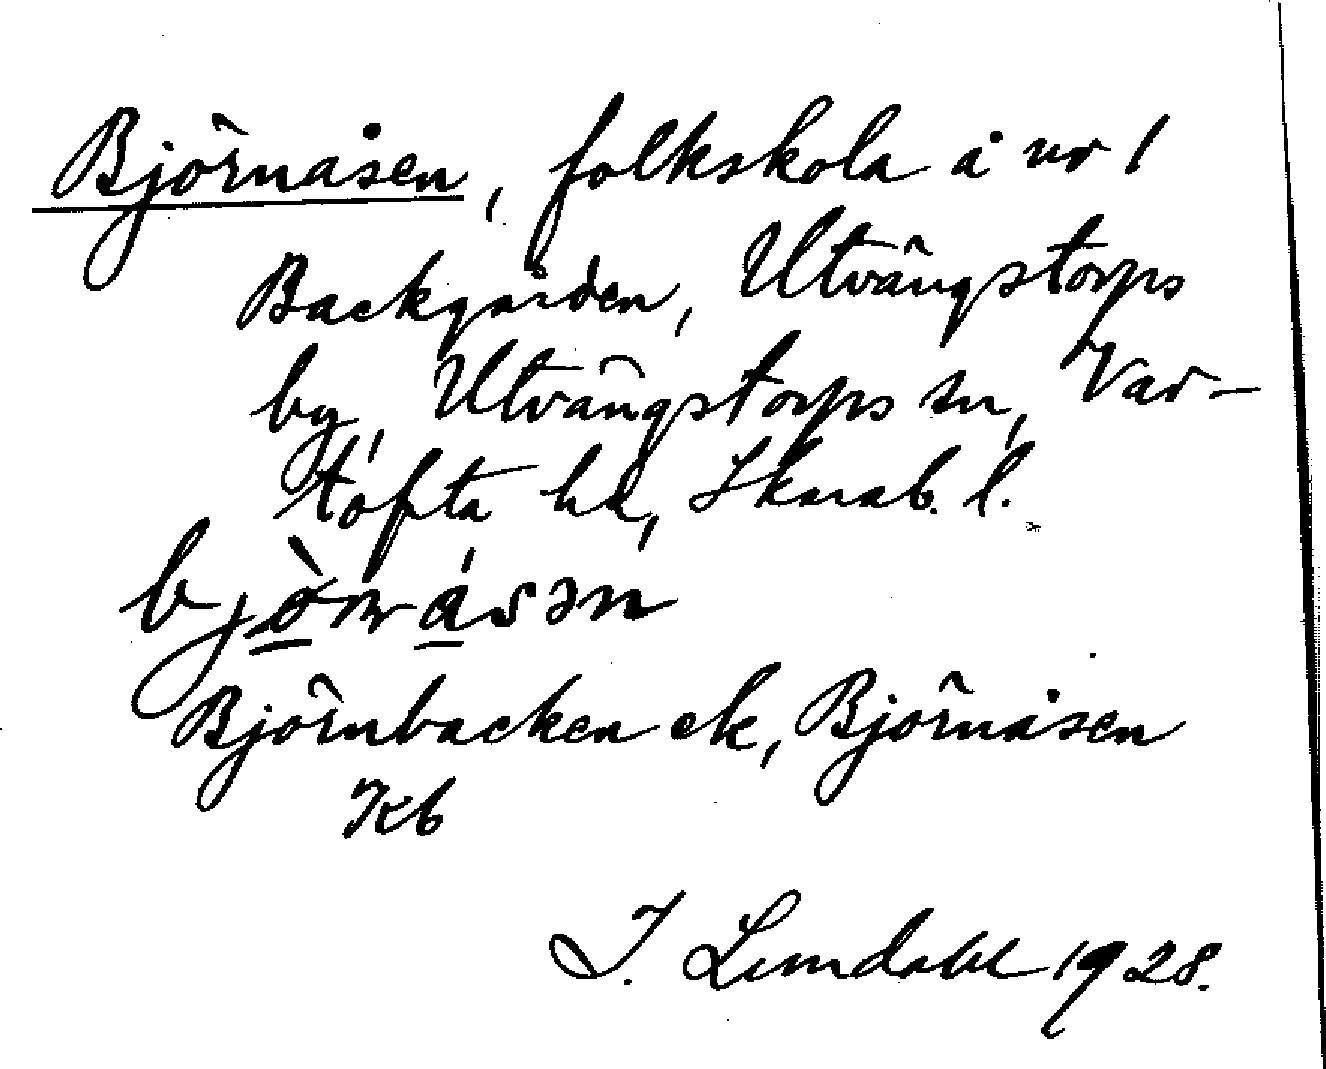 Björnåsen, folkskola å nr 1
Backgården, Utvängstorps
by, Utvängstorps sn, Var-
tofta hd, Skarab. l.
Björnbacken ek, Björnåsen
Kb
J. Lundahl 1928.